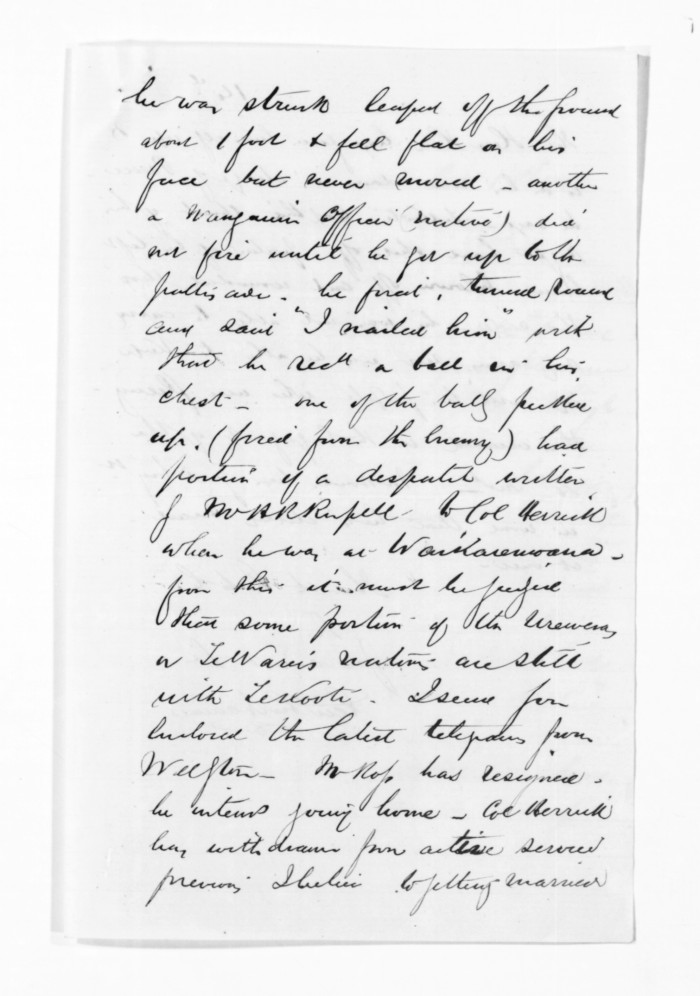 he was struck leaped off the ground
about 1 foot & fell flat on his
face but never moved - another
a Wanganui Officer (native) did
not fire until he got up to the
pallisade. he fired, turned round
and said "I nailed him" with
that he recd a ball in his
chest - one of the balls picked
up. (fired from the Enemy) had
portion of a despatch written
by Mr H R Russell to Col Herrick
when he was at Waikaremoana -
from this it must be judged
that some portion of the Urewera,
or Te Waru's natives are still
with Te Kooti. I send you
enclosed the latest telegrams from
Welgton - Mr Ross has resigned.
he intends going home - Col Herrick
has withdrawn from active service
previous I believe to getting married